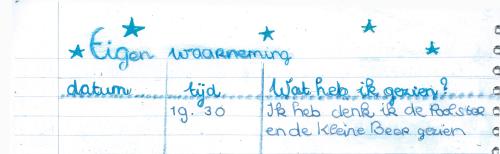 Eigen waarneming
datum tijd Wat heb ik gezien?
19.30 Ik heb denk ik de Poolster
en de Kleine Beer gezien